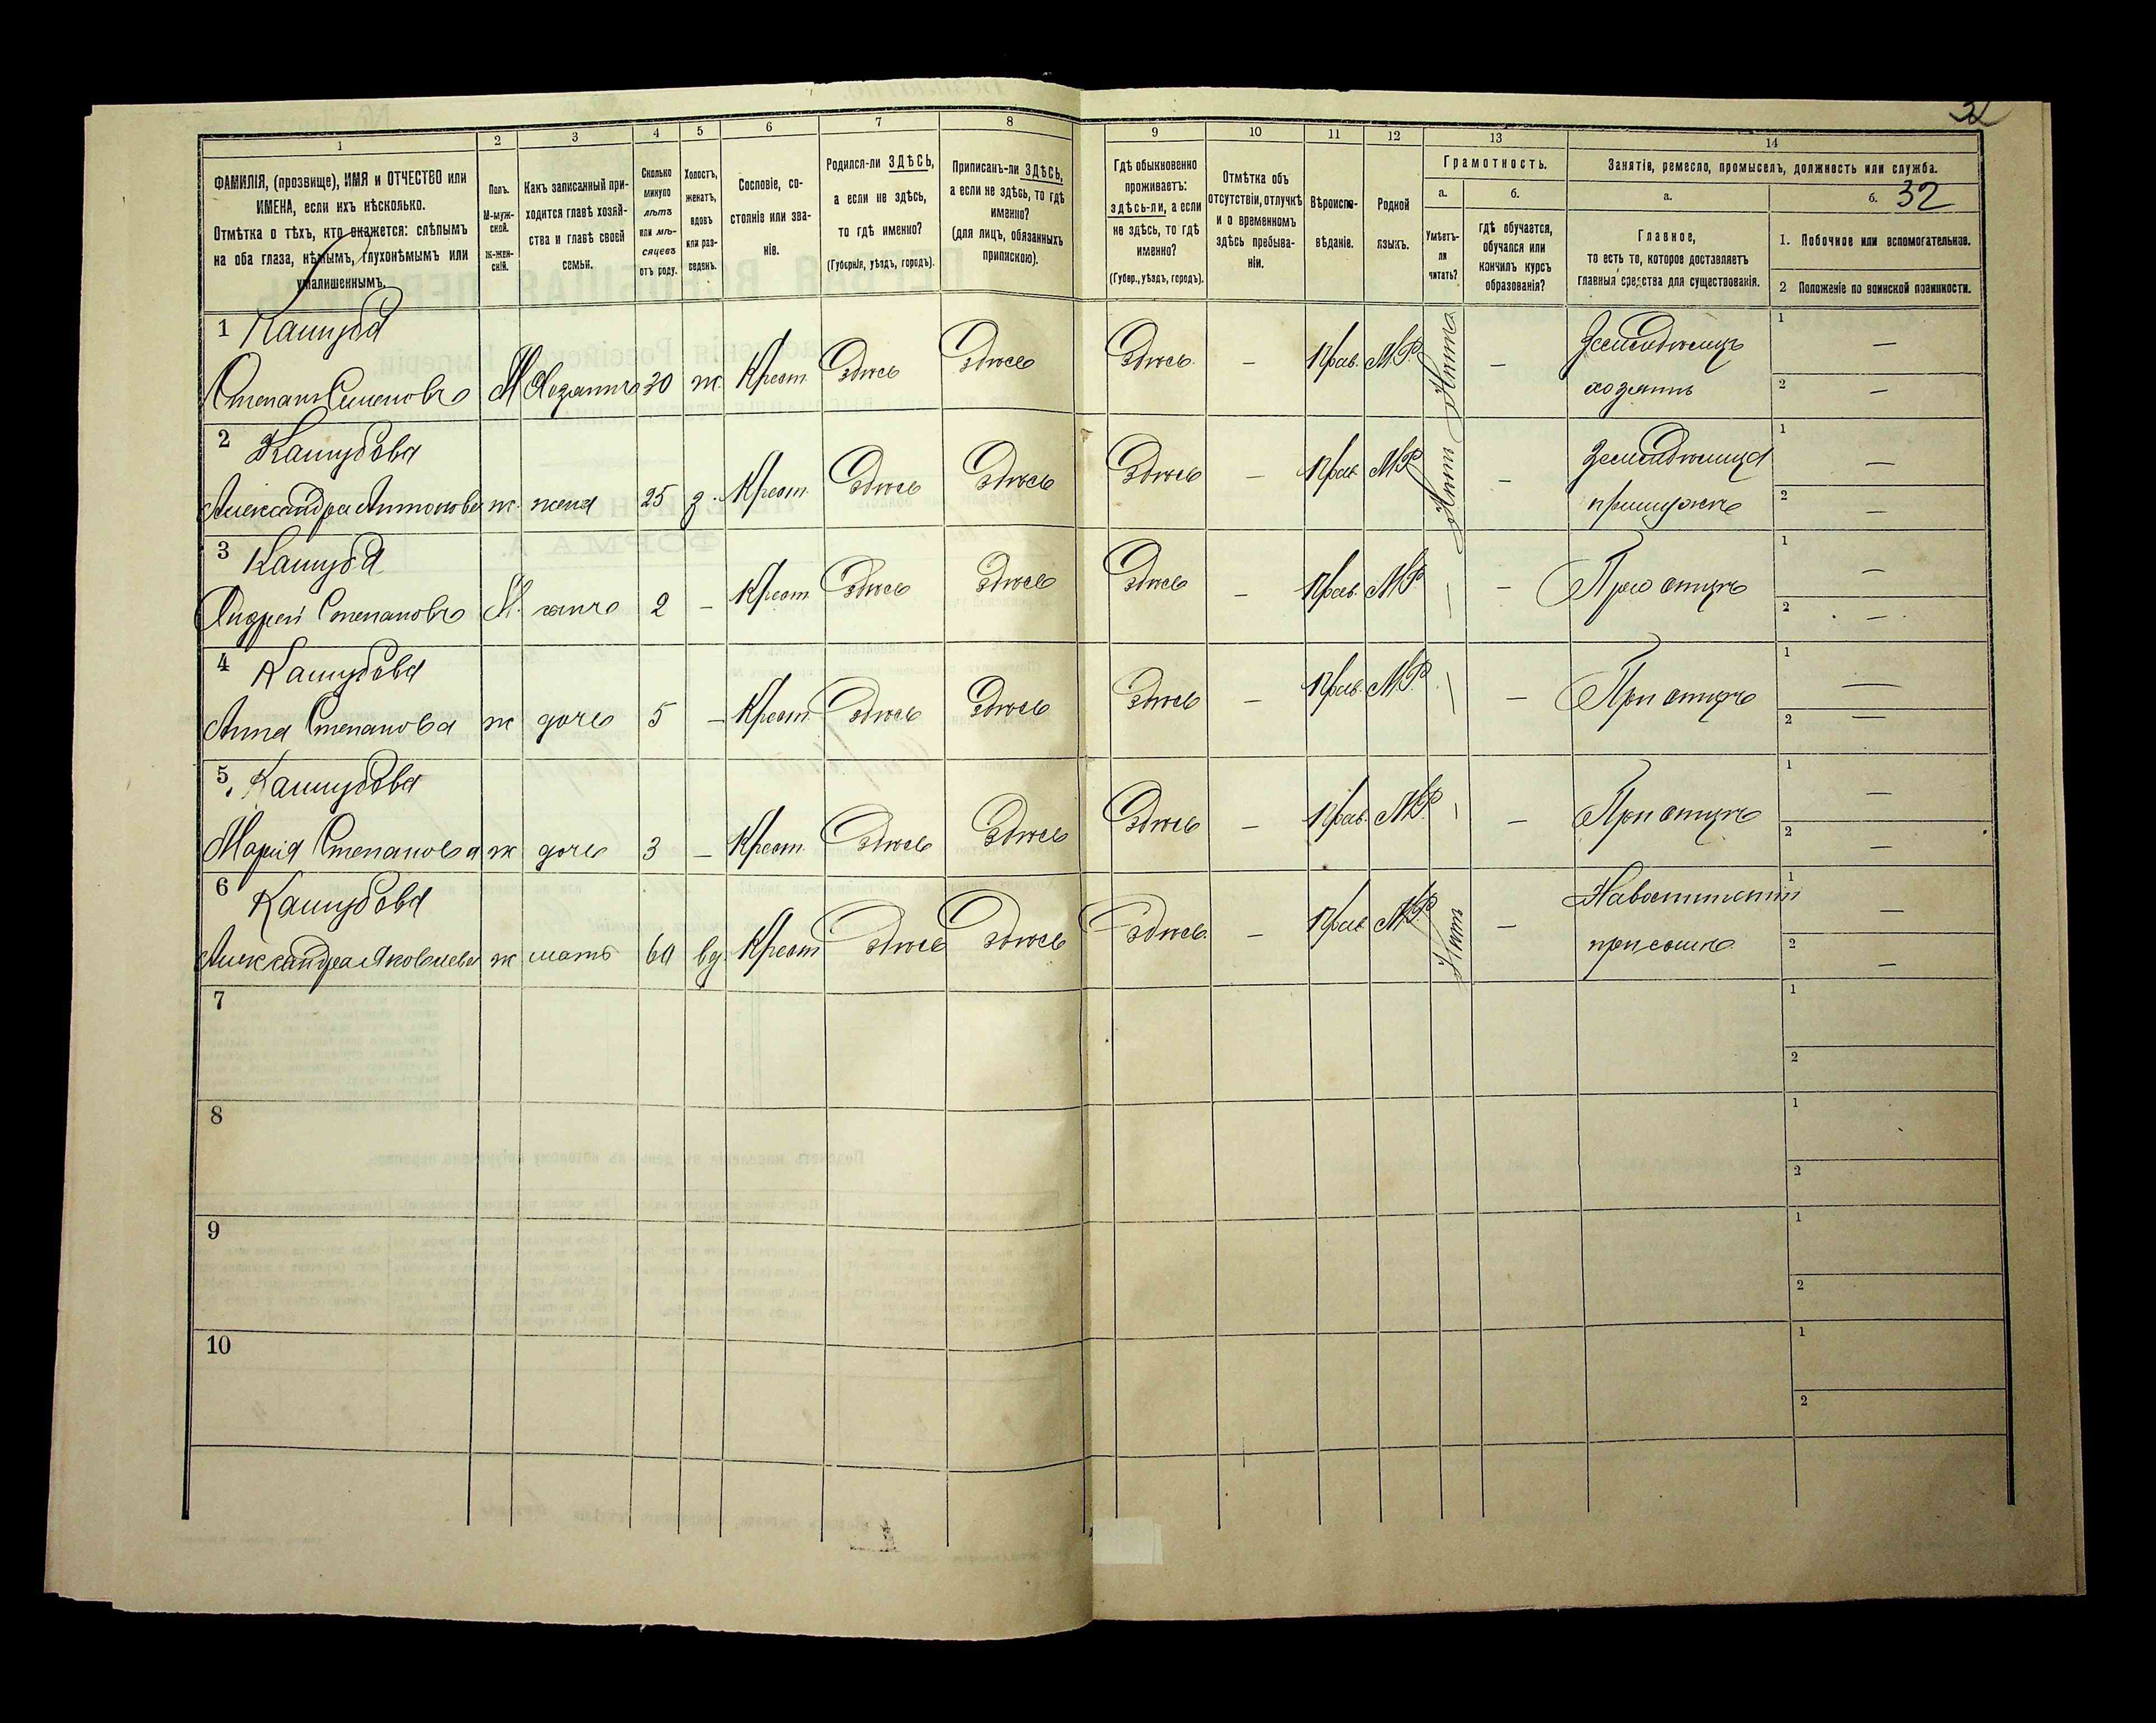 32
1
2
3
4
5
6
7
8
9
10
11
12
13
14
ФАМИЛІЯ, (прозвище), ИМЯ и ОТЧЕСТВО или
ИМЕНА, если ихъ нѣсколько.
Отмѣтка о тѣхъ, кто окажется: слѣпымъ
на оба глаза, нѣмымъ, глухонѣмымъ или
умалишеннымъ.
Полъ.
М-муж-
ской.
Ж-жен-
скій.
Какъ записанный при-
ходится главѣ хозяй-
ства и главѣ своей
семьи.
Сколько
минуло
лѣтъ
или мѣ-
сяцевъ
отъ роду.
Холостъ,
женатъ,
вдовъ
или раз-
веденъ.
Сословіе, со-
стояніе или зва-
ніе.
Родился-ли ЗДѢСЬ,
а если не здѣсь,
то гдѣ именно?
(Губернія, уѣздъ, городъ).
Приписанъ-ли ЗДѢСЬ,
а если не здѣсь, то гдѣ
именно?
(для лицъ, обязанныхъ
припискою).
Гдѣ обыкновенно
проживаетъ:
здѣсь-ли, а если
не здѣсь, то гдѣ
именно?
(Губер., уѣздъ, городъ).
Отмѣтка объ
отсутствіи, отлучкѣ
и о временномъ
здѣсь пребыва-
ніи.
Вѣроиспо-
вѣданіе.
Родной
языкъ.
Грамотность.
а.
б.
Умѣетъ-
ли
читать?
гдѣ обучается,
обучался или
кончилъ курсъ
образованія?
Занятія, ремесло, промыселъ, должность или служба.
а.
б. 32
Главное,
то есть то, которое доставляетъ
главныя средства для существованія.
1. Побочное или вспомогательное.
2 Положеніе по воинской повинности.
1 Кашуба
Степанъ Семеновъ М Хозяинъ 30 ж. Крест. Здѣсь Здѣсь Здѣсь — Прав. М.Р. Нѣтъ — Земледѣлецъ 1 —
хозяинъ 2 —
2 Кашубова
Александра Антонова ж. жена 25 з. Крест. Здѣсь Здѣсь Здѣсь — Прав. М.Р. Нѣтъ — Земледѣлица 1 —
примужѣ 2 —
3 Кашуба
Андрей Степановъ М. сынъ 2 — Крест. Здѣсь Здѣсь Здѣсь — Прав. М.Р. — — При отцѣ 1 —
2 —
4 Кашубова
Анна Степанова ж дочь 5 — Крест. Здѣсь Здѣсь Здѣсь — Прав. М.Р. — — При отцѣ 1 —
2 —
5. Кашубова
Марія Степанова ж дочь 3 — Крест. Здѣсь Здѣсь Здѣсь — Прав. М.Р. — — При отцѣ 1 —
2 —
6 Кашубова
Александра Яковлева ж мать 60 вд. Крест. Здѣсь Здѣсь Здѣсь — Прав. М.Р. Нѣтъ — 1 —
при сынѣ 2 —
7 1
2
8 1
2
9 1
2
10 1
2